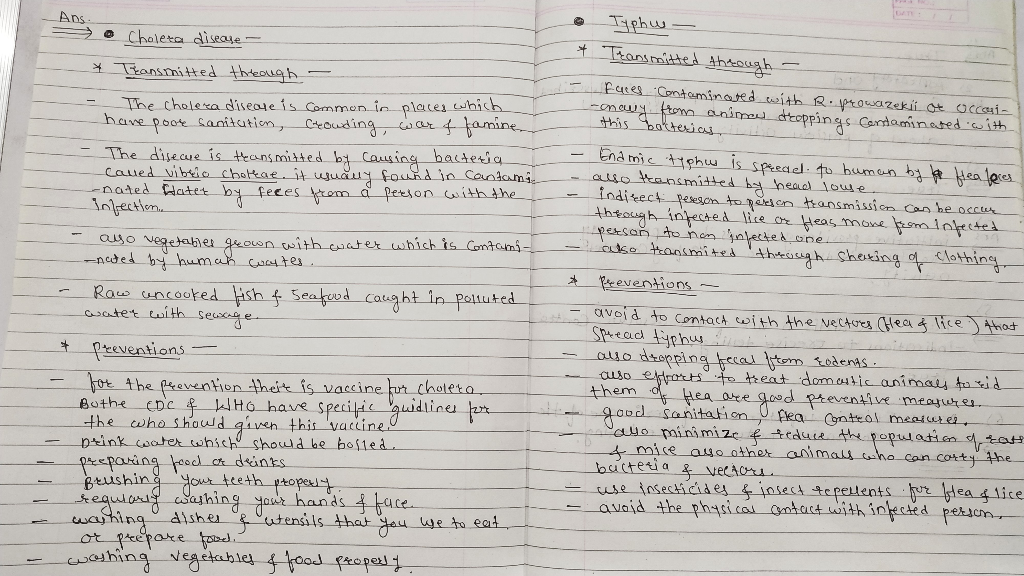 Ans.
• Cholera disease —
* Transmitted through —
- The cholera disease is common in places which
have poor sanitution, crowding, war & famine.
- The disease is transmitted by causing bacteria
called vibrio cholrae. it usually found in contami-
-nated water by feces from a person with the
infection.
- also vegetables grown with water which is contami-
-nated by human wastes.
- Raw uncooked fish & seafood caught in polluted
water with sewage.
* Preventions —
- for the prevention their is vaccine for cholera.
Bothe CDC & WHO have specific guidlines for
the who should given this vaccine.
- Drink water which should be boiled.
- preparing food or drinks
- Brushing your teeth properly
- regularly washing your hands & face.
- washing dishes & utensils that you use to eat
or prepare food.
- washing vegetables & food properly.
• Typhus —
* Transmitted through —
- Faces contaminated with R. prowazekii or occasi-
-onally from animal droppings contaminated with
this bacterias.
- Endmic typhus is spread to human by flea
- also transmitted by head louse.
- indirect person to person transmission can be occur
through infected lice or fleas move from infected
person to non infected one.
- also transmited through shering of clothing.
* Preventions —
- avoid to contact with the vectors (flea & lice) that
spread typhus.
- also dropping fecal from rodents.
- also efforts to treat domastic animals to rid
them of flea are good preventive measures.
- good sanitation, flea control measures.
- also minimize & reduce the population of rats
& mice also other animals who can carry the
bacteria & vectors.
- use insecticides & insect repellents for flea & lice
- avoid the physical contact with infected person.